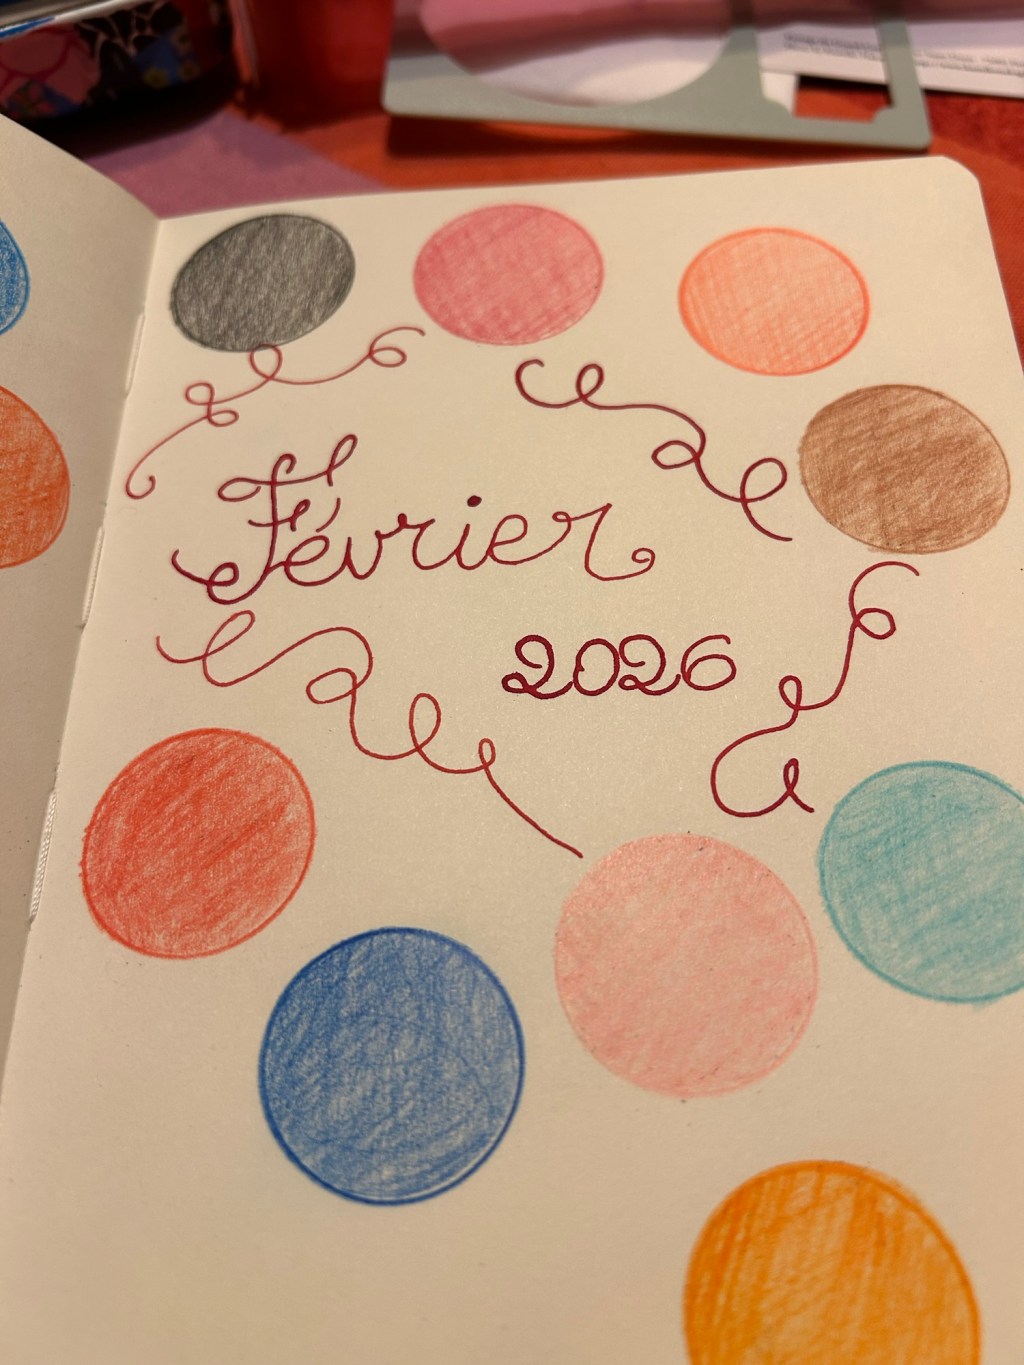 Février
2026